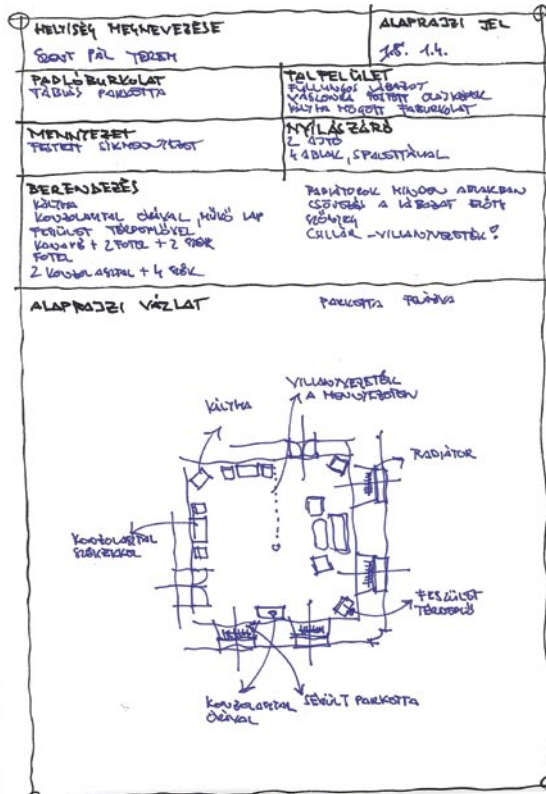 HELYISÉG MEGNEVEZÉSE
SZENT PÁL TEREM
ALAPRAJZI JEL
1.8. 1.4.
PADLÓBURKOLAT
TÁBLÁS PARKETTA
FALFELÜLET
FÜLLUNGOS LÁBAZAT
VÁSZONRA FESTETT OLAJKÉPEK
KÁLYHA MÖGÖTT FABURKOLAT
MENNYEZET
FESTETT SÍKMENNYEZET
NYÍLÁSZÁRÓ
2 AJTÓ
4 ABLAK, SPALETTÁVAL
BERENDEZÉS
KÁLYHA
KONZOLASZTAL ÓRÁVAL, MŰKŐ LAP
FESZÜLET TÉRDEPLŐVEL
KANAPÉ + 2 FOTEL + 2 SZÉK
FOTEL
2 KONZOLASZTAL + 4 SZÉK
RADIÁTOROK MINDEN ABLAKBAN
CSÖVEZÉS A LÁBAZAT ELŐTT
SZŐNYEG
CSILLÁR - VILLANYVEZETÉK!
ALAPRAJZI VÁZLAT
PARKETTA
VILLANYVEZETÉK
A MENNYEZETEN
KÁLYHA
RADIÁTOR
KONZOLASZTAL
SZÉKEKKEL
FESZÜLET
TÉRDEPLŐ
KONZOLASZTAL
ÓRÁVAL
SÉRÜLT PARKETTA